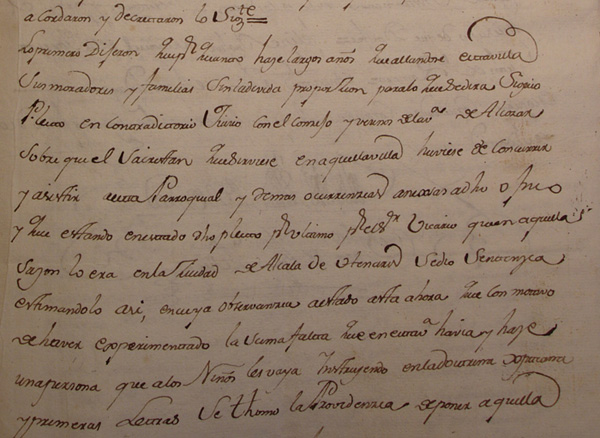 acordaron y decretaron lo Sigte
Lo primero Dijeron que pr quanto haze largos años que allandose esta villa
Sus moradores y familias Sin la devida proporsion para lo que deduxa Siguio
Pleito en Contradictorio Juicio con el Consejo y vecinos de la va de Alcazar
Sobre que el Sacristan que sirviese en aquella villa huviese de Concurrir
y asistir a esta Parroquial y demas ocurrencias anexas a dho oficio
y que estando en estado dho pleito pr ultimo pr el Sr Vicario que en aquella
Sazon lo era en la Ciudad de Alcala de Henares Se dio Sentencia
estimandolo asi, en cuya observancia a estado asta ahora que con motivo
de haver experimentado la Suma falta que en esta va havia y haze
una persona que a los Niños les vaya Instruyendo en la doctrina
y primeras Letras Se thomo la Providencia de poner aquella